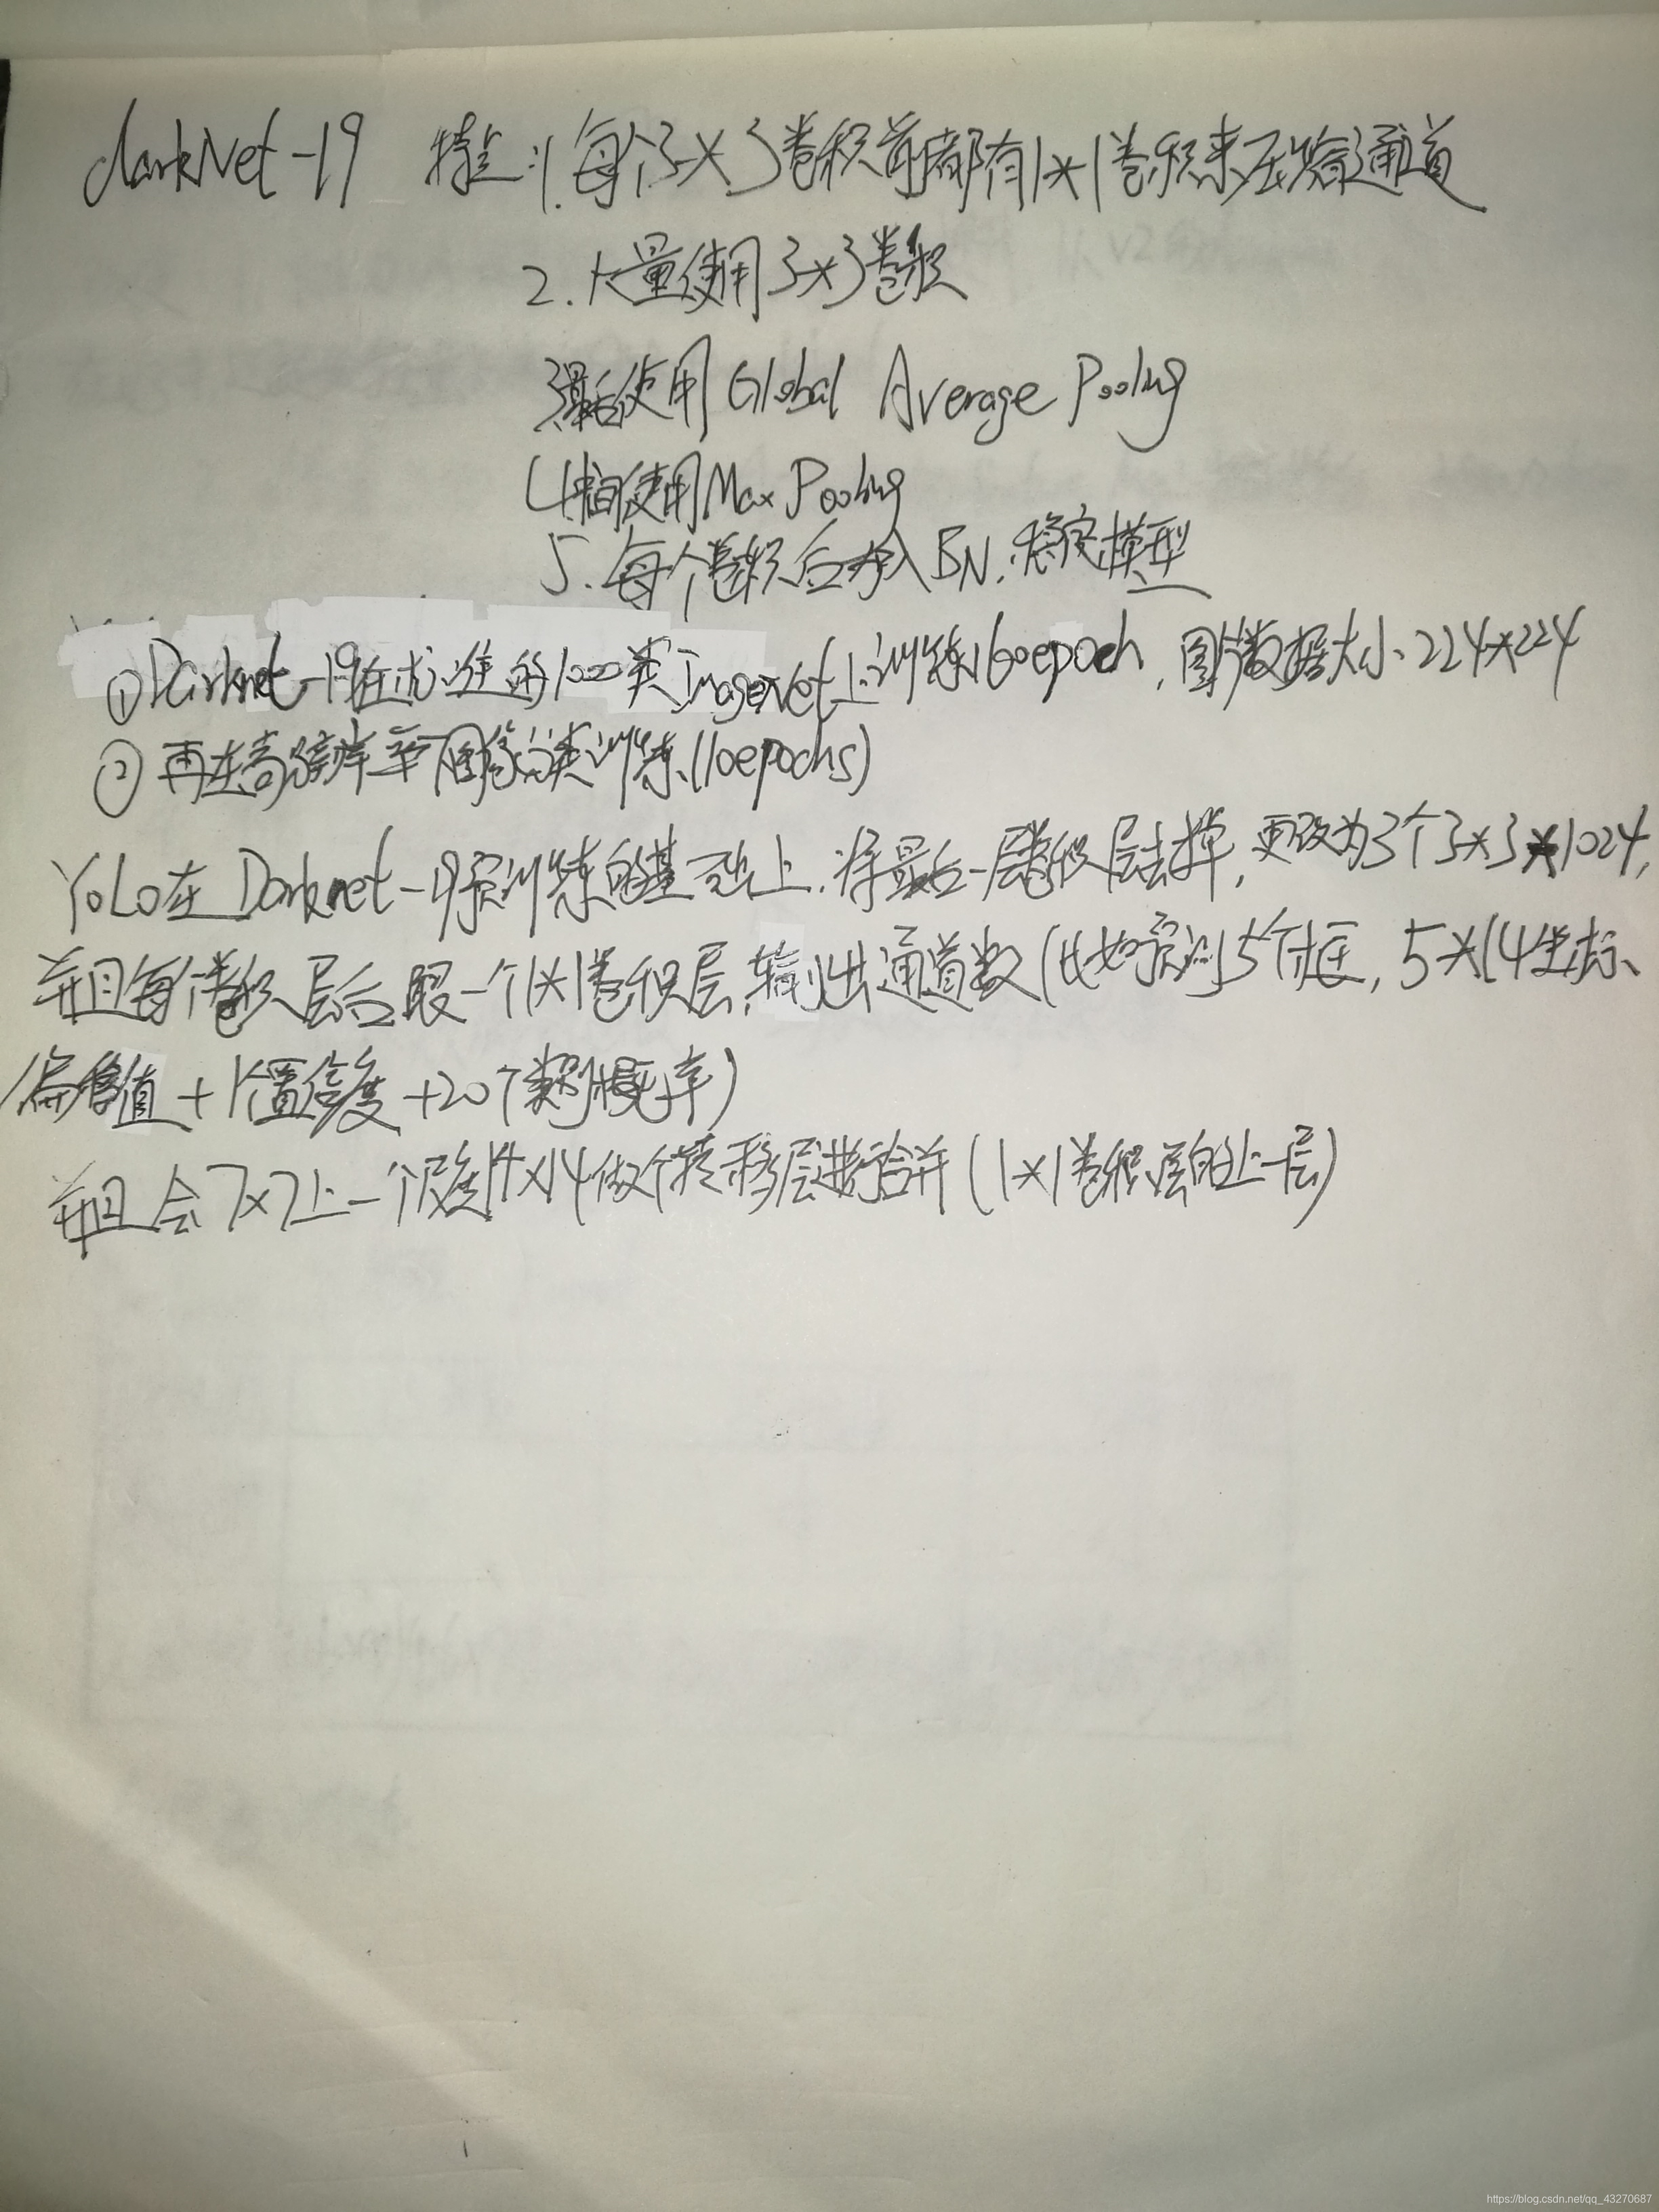 darkNet-19 特点:1.每个3×3卷积前都有1×1卷积来压缩通道
2.大量使用3×3卷积
3.最后使用Global Average Pooling
4.中间使用Max Pooling
5.每个卷积后加入BN,稳定模型
①Darknet-19在标准的1000类ImageNet上训练160epoch,图片数据大小224×224
②再在高分辨率图像分类训练(10epochs)
YOLO在Darknet-19预训练的基础上,将最后一层卷积层去掉,更改为3个3×3×1024,
并且每个卷积层后跟一个1×1卷积层,输出通道数(比如预测5个框,5×(4坐标、
偏移值+1个置信度+20个类别概率)
并且会7×7上一个尺度14×14做个转移层进行合并(1×1卷积层的上一层)
https://blog.csdn.net/qq_43270687